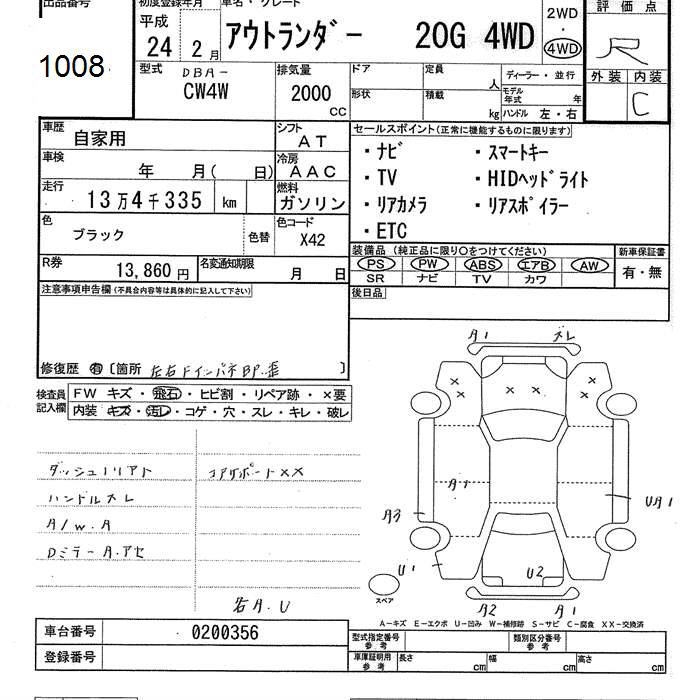 出品番号
1008
初度登録年月
平成
24 2月
車名・グレード
アウトランダー 20G 4WD
2WD
・
4WD
評価点
R
外装 内装
C
型式
DBA-
CW4W
排気量
2000
CC
ドア
形状
定員
人
積載
kg
ディーラー・並行
モデル年式 年
ハンドル 左・右
車歴
自家用
シフト
AT
車検
年 月( 日)
冷房
AAC
走行
13万4千335 km
燃料
ガソリン
色
ブラック
色替
色コード
X42
R券
13,860円
名変通知期限
月 日
セールスポイント(正常に機能するものに限ります)
・ナビ ・スマートキー
・TV ・HIDヘッドライト
・リアカメラ ・リアスポイラー
・ETC
装備品(純正品に限り○をつけてください)
PS PW ABS エアB AW
SR ナビ TV カワ
新車保証書
有・無
後日品
注意事項申告欄(不具合内容等は具体的に記入して下さい)
修復歴 有 〔箇所 左右Fインパネ BP.歪 〕
検査員
記入欄
FW キズ・飛石・ヒビ割・リペア跡・×要
内装 キズ・汚レ・コゲ・穴・スレ・キレ・破レ
コアサポートXX
ハンドルスレ
A/W.A
Dミラー A.アセ
各A.U
A1 ズレ
A1
A3
UA1
U1
U2
A2 A1
スペア
A-キズ E-エクボ U-凹み W-補修跡 S-サビ C-腐食 XX-交換済
車台番号 0200356
登録番号
型式指定番号
参考
類別区分番号
参考
車庫証明用
参考
長さ cm 幅 cm 高さ cm